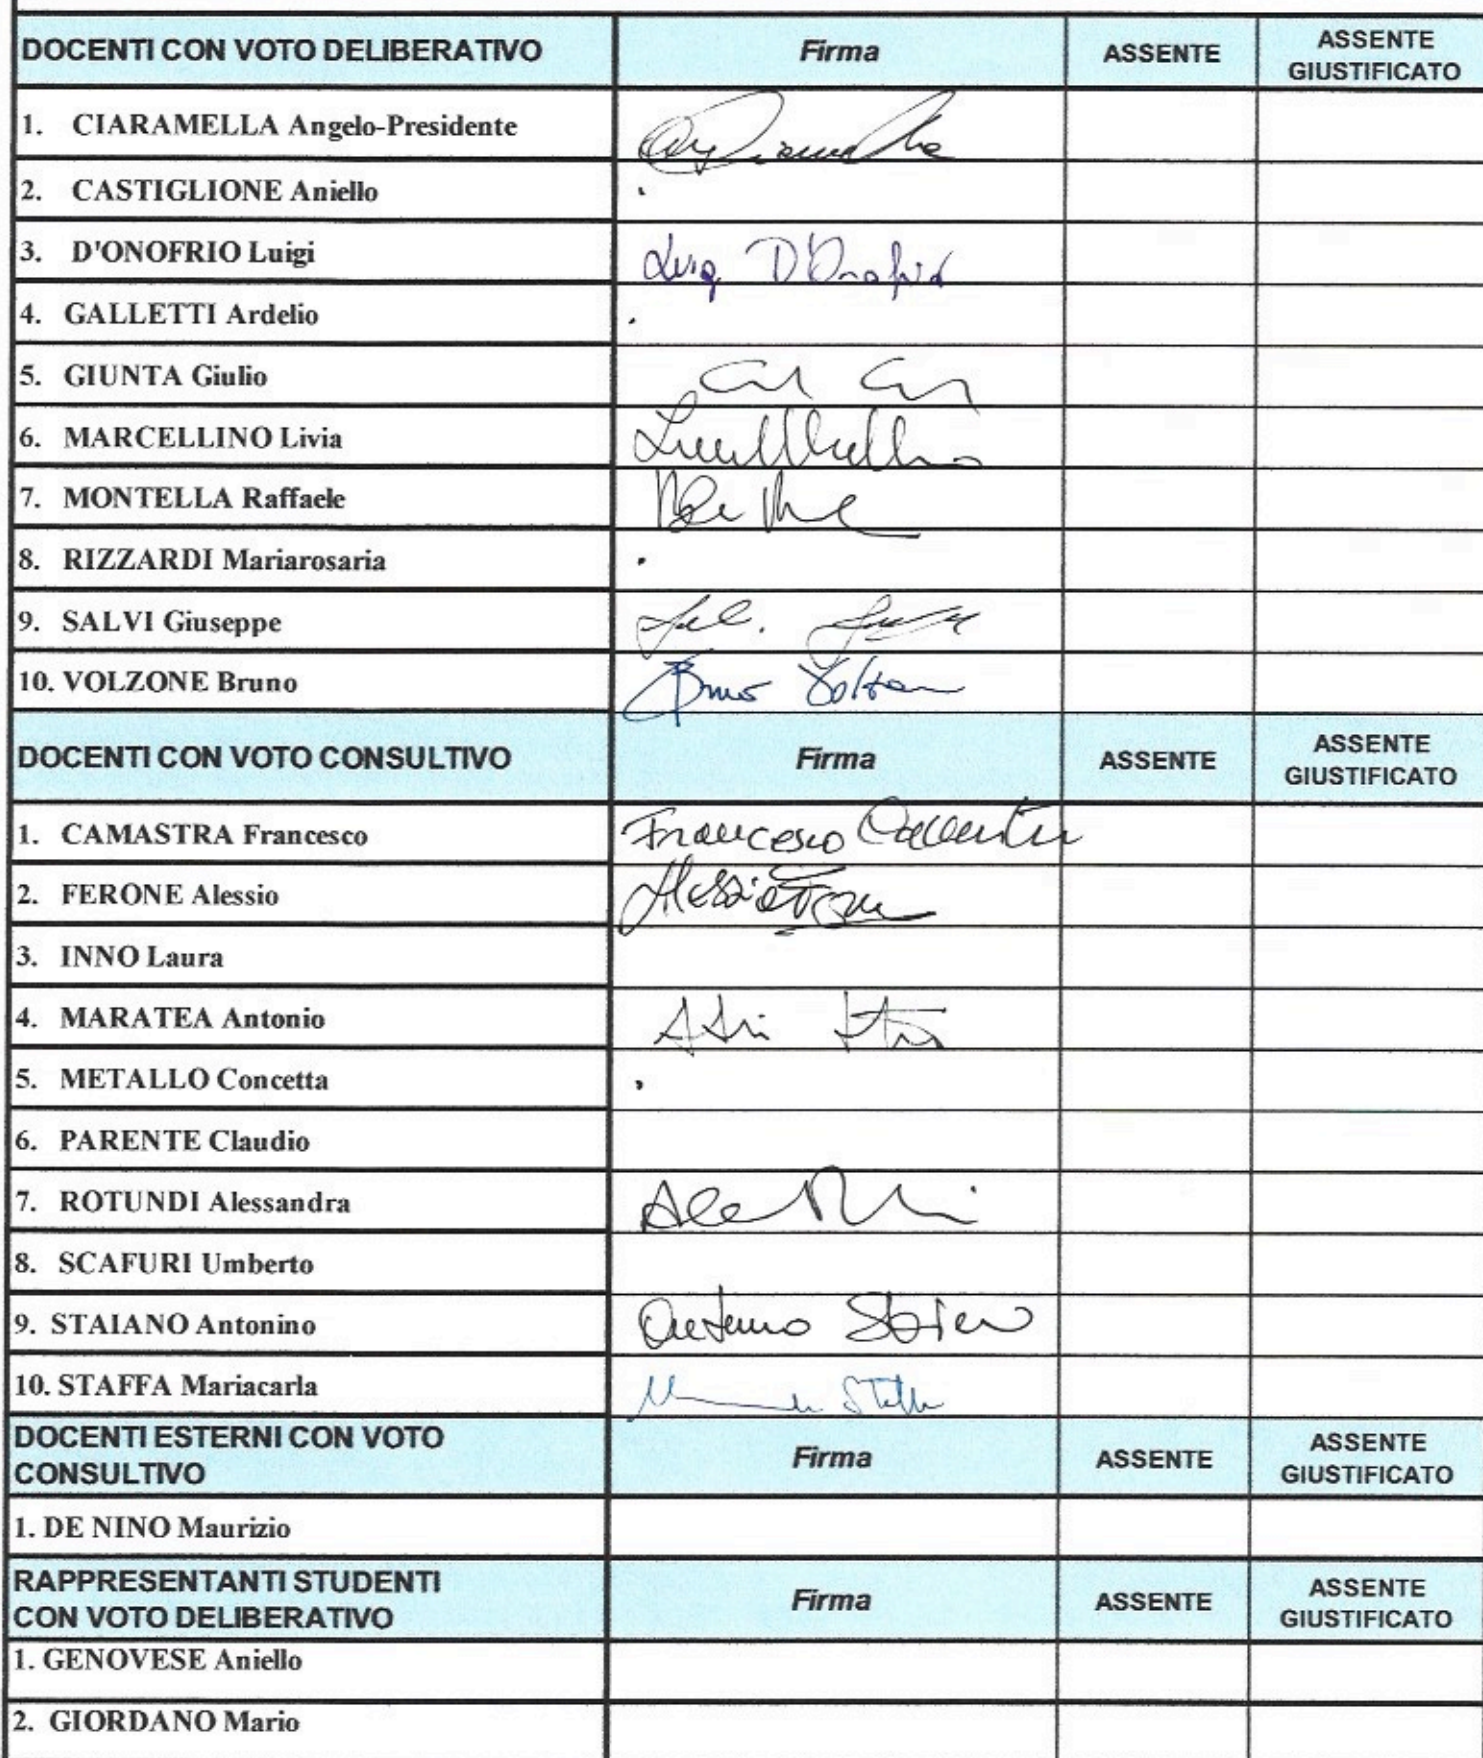 DOCENTI CON VOTO DELIBERATIVO Firma ASSENTE ASSENTE GIUSTIFICATO
1. CIARAMELLA Angelo-Presidente
2. CASTIGLIONE Aniello
3. D'ONOFRIO Luigi Luigi D'Onofrio
4. GALLETTI Ardelio
5. GIUNTA Giulio
6. MARCELLINO Livia
7. MONTELLA Raffaele
8. RIZZARDI Mariarosaria
9. SALVI Giuseppe
10. VOLZONE Bruno Bruno Volzone
DOCENTI CON VOTO CONSULTIVO Firma ASSENTE ASSENTE GIUSTIFICATO
1. CAMASTRA Francesco Francesco Camastra
2. FERONE Alessio Alessio Ferone
3. INNO Laura
4. MARATEA Antonio
5. METALLO Concetta
6. PARENTE Claudio
7. ROTUNDI Alessandra
8. SCAFURI Umberto
9. STAIANO Antonino Antonino Staiano
10. STAFFA Mariacarla
DOCENTI ESTERNI CON VOTO CONSULTIVO Firma ASSENTE ASSENTE GIUSTIFICATO
1. DE NINO Maurizio
RAPPRESENTANTI STUDENTI CON VOTO DELIBERATIVO Firma ASSENTE ASSENTE GIUSTIFICATO
1. GENOVESE Aniello
2. GIORDANO Mario